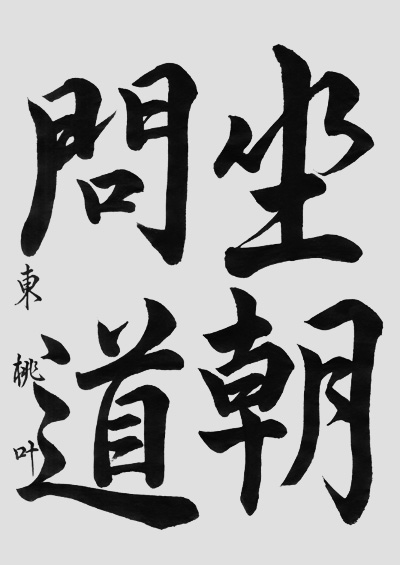 坐朝
問道
東 桃叶